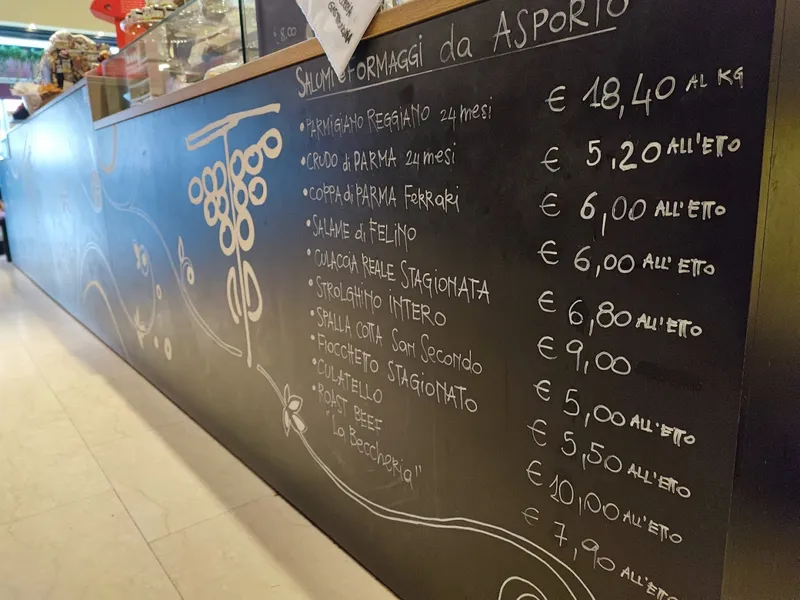 € 8,00
SALUMI e FORMAGGI da ASPORTO
• PARMIGIANO REGGIANO 24 mesi € 18,40 AL KG
• CRUDO di PARMA 24 mesi € 5,20 ALL'ETTO
• COPPA di PARMA FERRARI € 6,00 ALL'ETTO
• SALAME di FELINO € 6,00 ALL'ETTO
• CULACCIA REALE STAGIONATA € 6,80 ALL'ETTO
• STROLGHINO INTERO € 9,00
• SPALLA COTTA San Secondo € 5,00 ALL'ETTO
• FIOCCHETTO STAGIONATO € 5,50 ALL'ETTO
• CULATELLO € 10,00 ALL'ETTO
• ROAST BEEF € 7,90 ALL'ETTO
"La Beccheria"